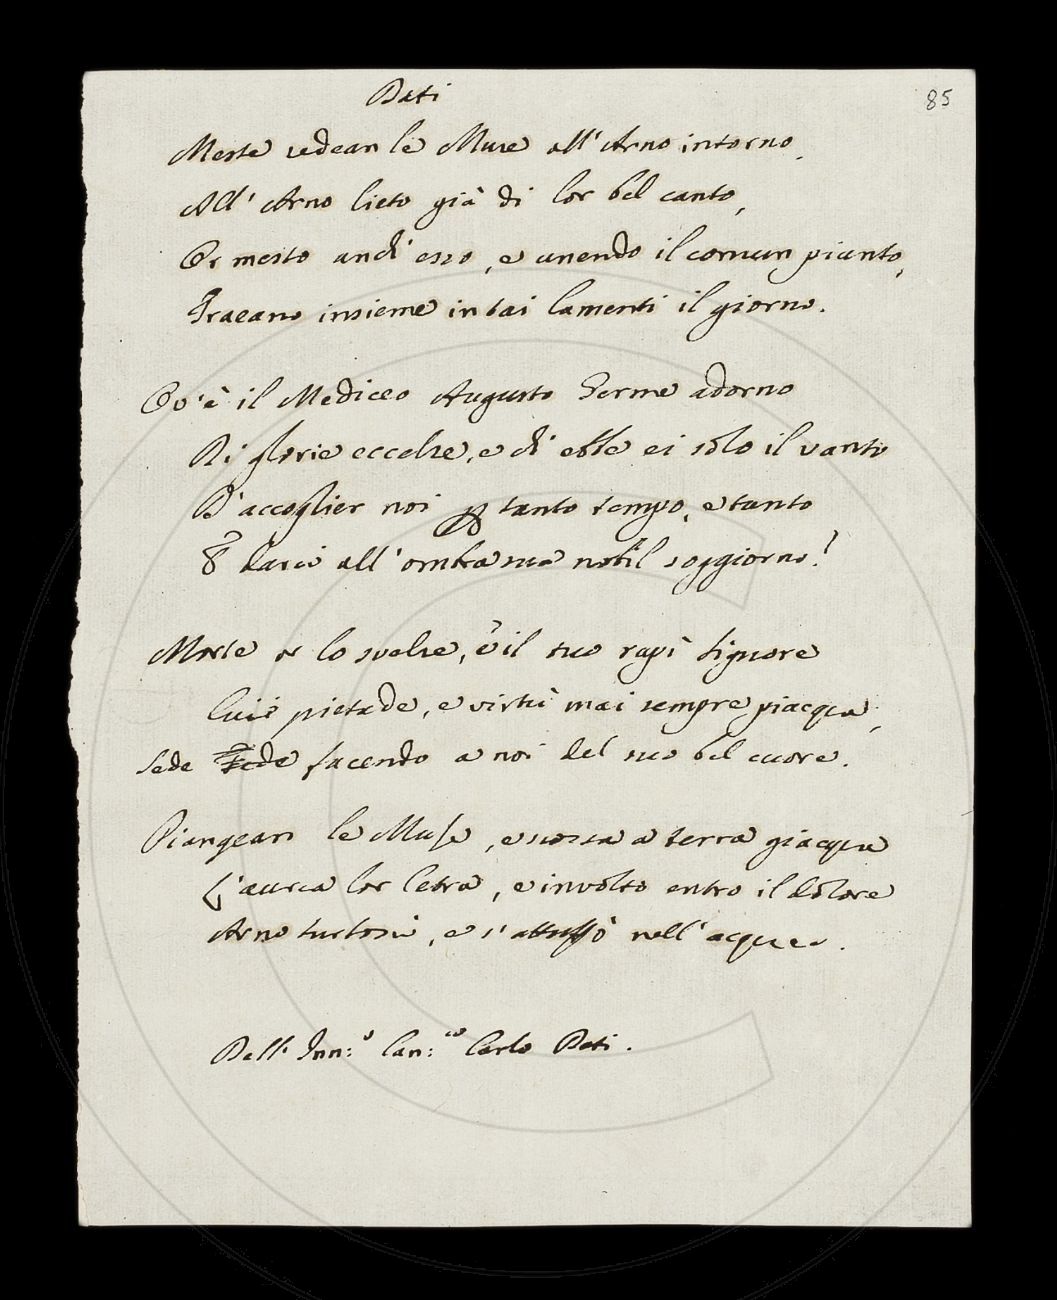 Dati
85
Meste sedean le Muse all'Arno intorno,
All'Arno lieto già di lor bel canto,
Or mesto anch'esso, e unendo il comun pianto,
Traeano insieme in tai lamenti il giorno.
Ov'è il Mediceo Augusto Germe adorno
Di glorie eccelse, e ch'ebbe ei solo il vanto
D'accoglier noi p tanto tempo, e tanto
E darci all'ombra sua nobil soggiorno!
Morte lo svelse, e il suo rapì Signore
Cui pietade, e virtù mai sempre piacque,
Sede Fede facendo a noi del suo bel cuore.
Piangean le Muse, e scossa a terra giacque
L'aurea lor Cetra, e involto entro il dolore
Arno turbossi, e s'attuffò nell'acque.
Dell' Inn:º Can:co Carlo Dati.